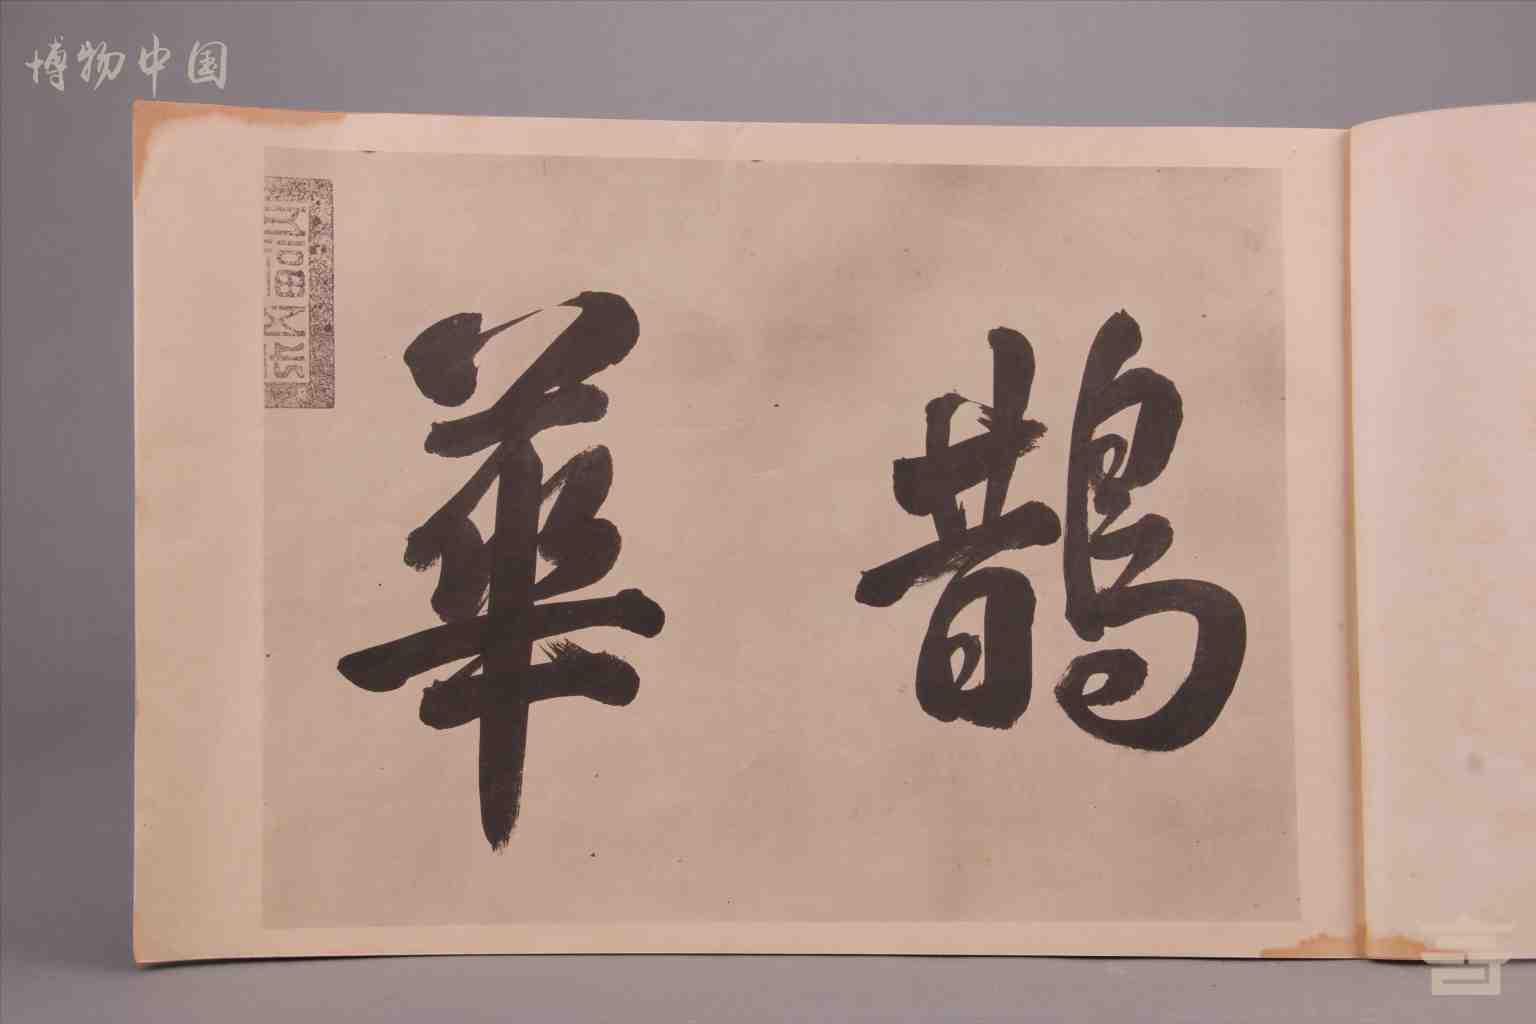 博物中国
鵲華